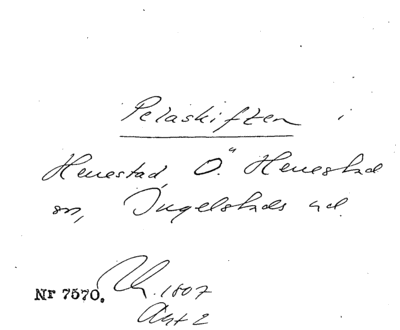 Pelaskiften i
Henestad, Ö. Henestad
sn, Ingelstads hd.
Nr 7570. 1807
Akt 2